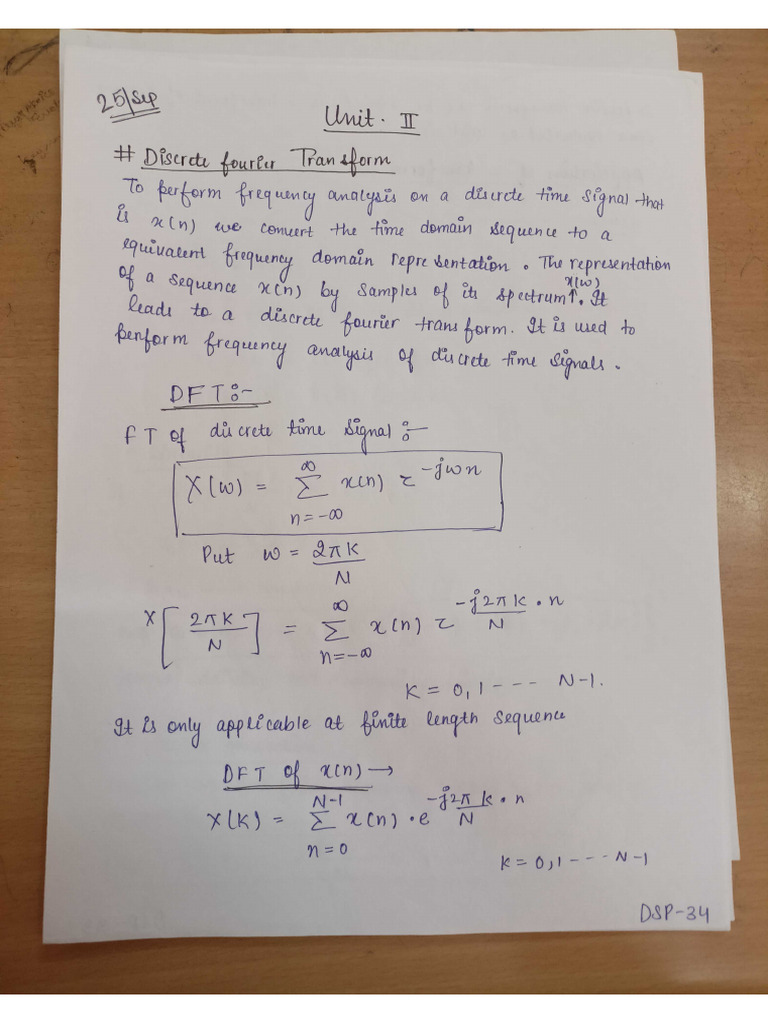 25/Sep
Unit. II
# Discrete fourier Transform
To perform frequency analysis on a discrete time signal that
is x(n) we convert the time domain sequence to a
equivalent frequency domain representation. The representation
of a sequence x(n) by samples of its spectrum↑. It
x(w)
leads to a discrete fourier transform. It is used to
perform frequency analysis of discrete time signals.
DFT:-
FT of discrete time signal :-
X(w) = ∞ Σ n=-∞ x(n) e^-jwn
Put w = 2πK/N
X[2πK/N] = ∞ Σ n=-∞ x(n) e^-j2πK/N • n
K = 0, 1 - - - N-1.
It is only applicable at finite length sequence
DFT of x(n) →
X(K) = N-1 Σ n=0 x(n) • e^-j2π/N K • n
K = 0, 1 - - - N-1
DSP-34